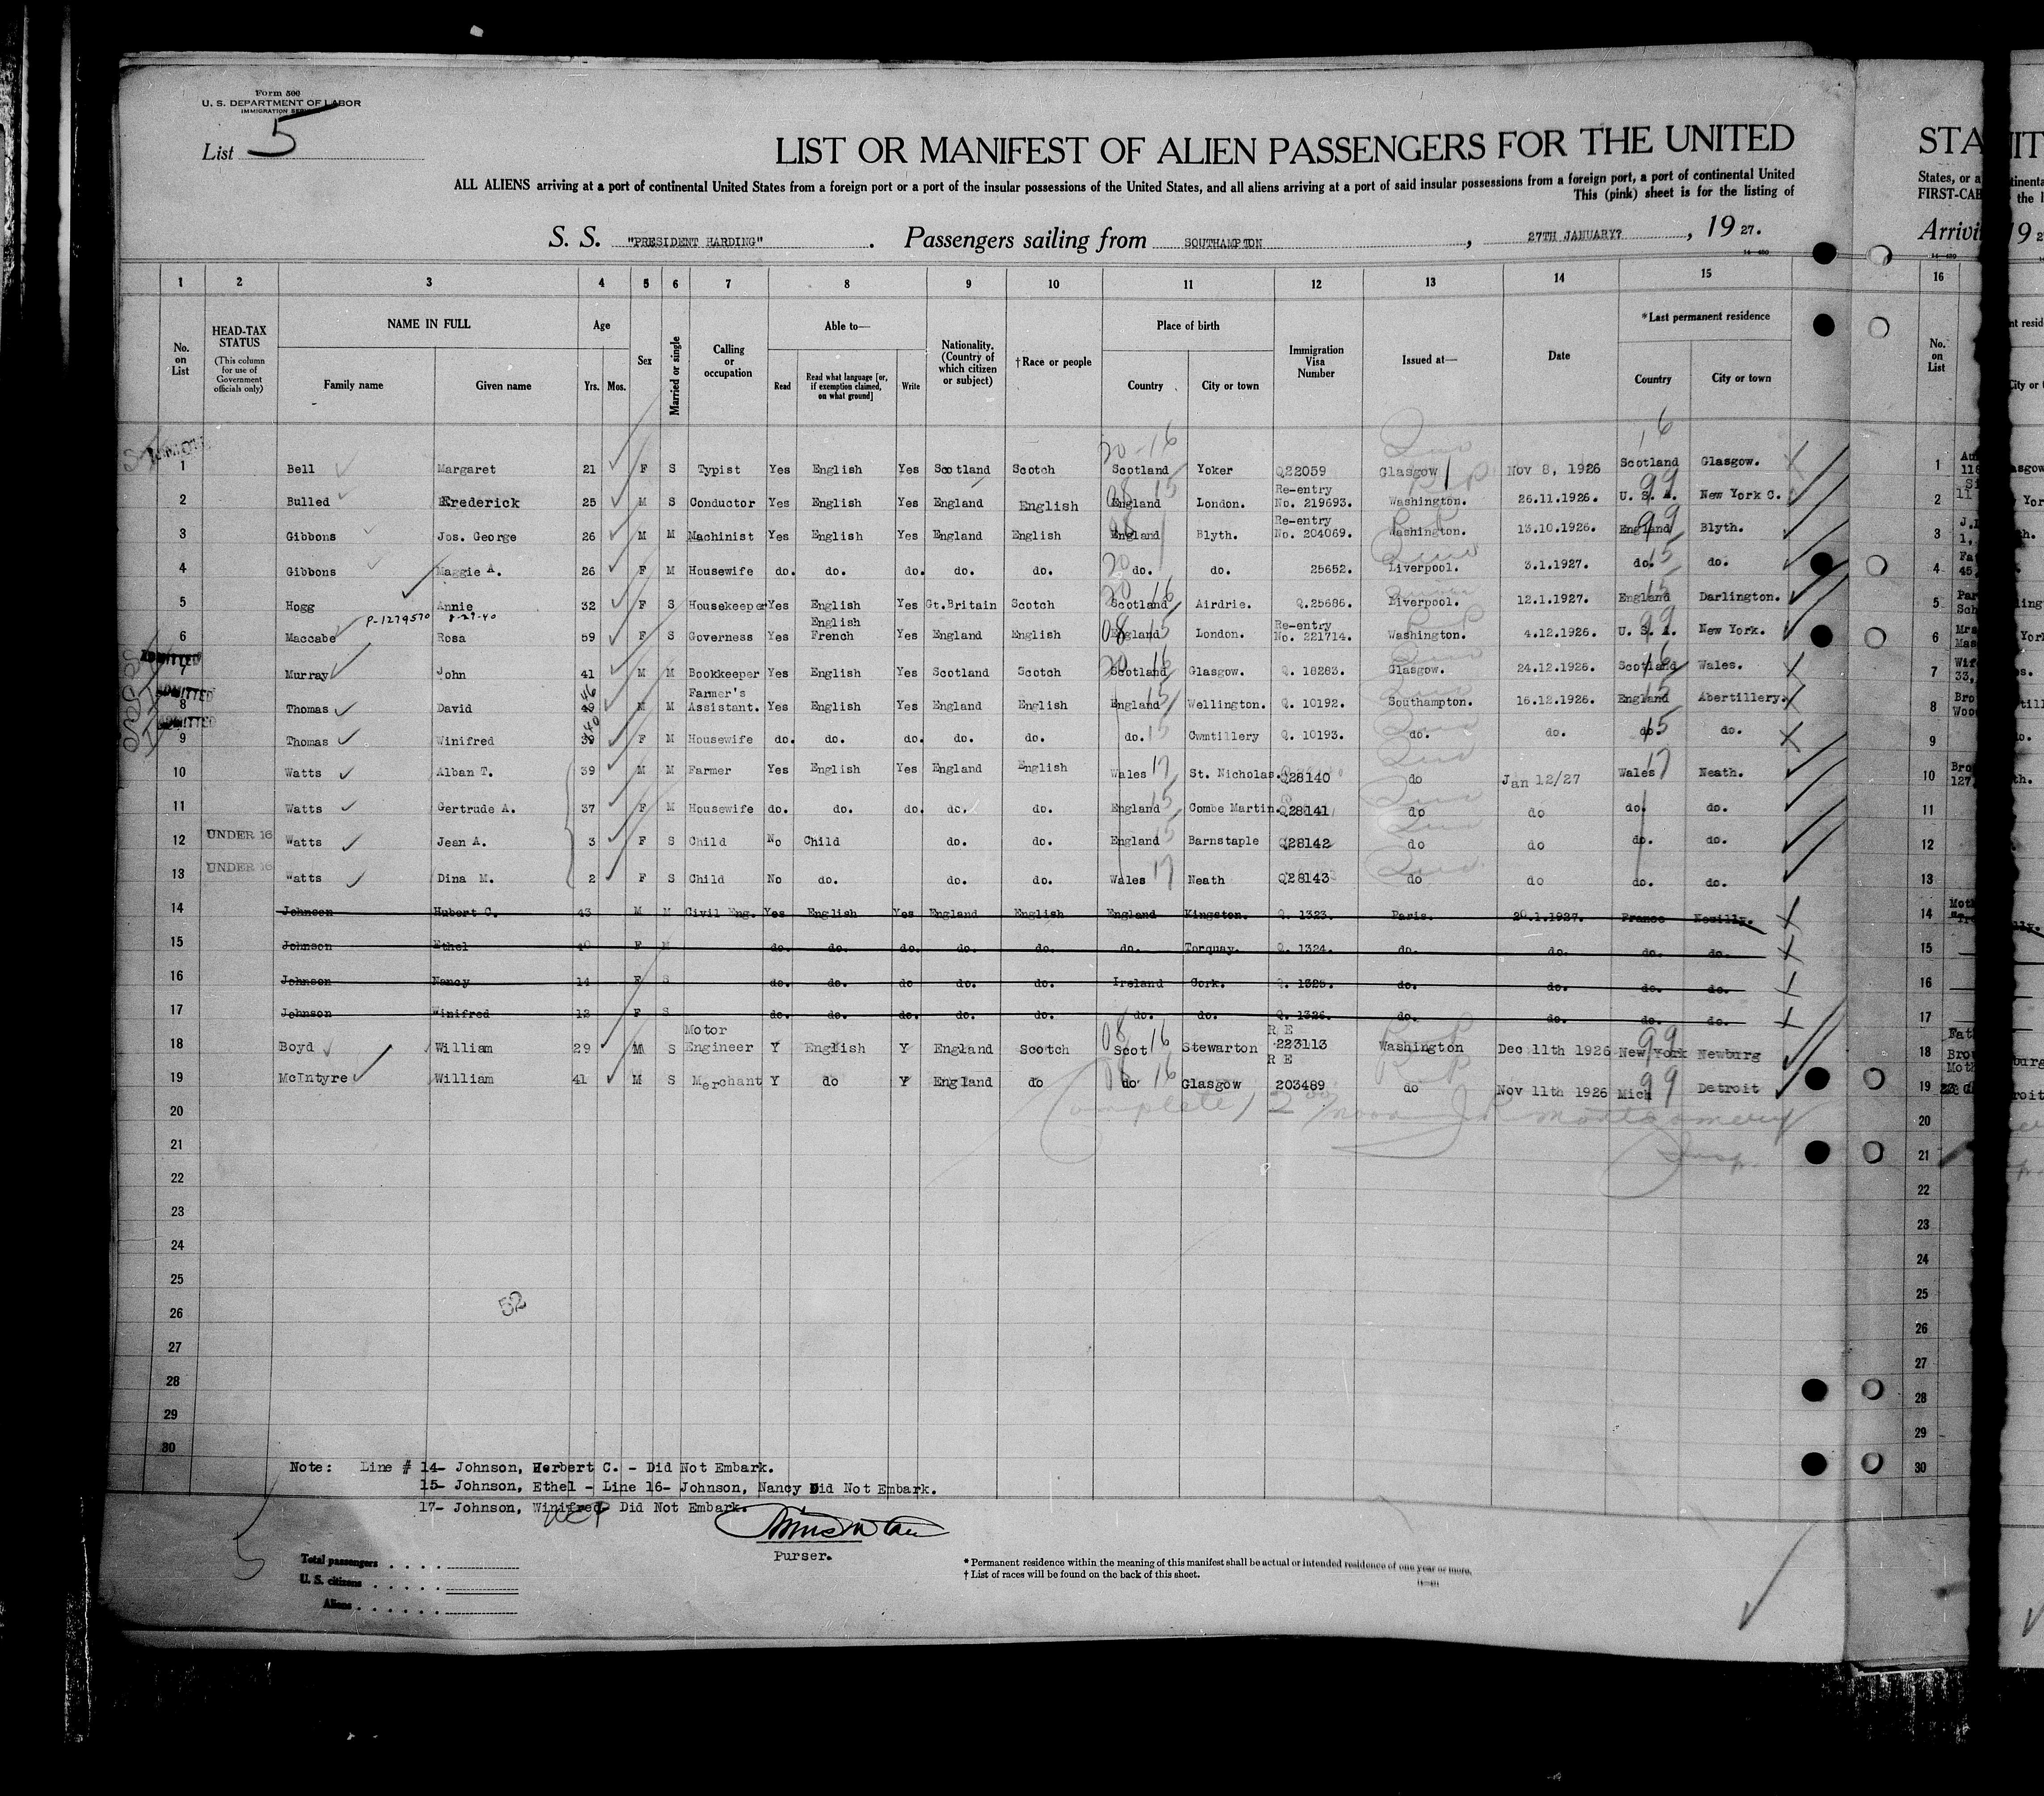 Form 500
U. S. DEPARTMENT OF LABOR
IMMIGRATION SERVICE
List 5
LIST OR MANIFEST OF ALIEN PASSENGERS FOR THE UNITED
ALL ALIENS arriving at a port of continental United States from a foreign port or a port of the insular possessions of the United States, and all aliens arriving at a port of said insular possessions from a foreign port, a port of continental United
This (pink) sheet is for the listing of
S. S. "PRESIDENT HARDING" . Passengers sailing from SOUTHAMPTON , 27TH JANUARY? , 19 27.
1 2 3 4 5 6 7 8 9 10 11 12 13 14 15
No. on List
HEAD-TAX STATUS (This column for use of Government officials only)
NAME IN FULL
Family name Given name
Age Yrs. Mos.
Sex
Married or single
Calling or occupation
Able to—
Read Read what language [or, if exemption claimed, on what ground] Write
Nationality. (Country of which citizen or subject)
†Race or people
Place of birth
Country City or town
Immigration Visa Number
Issued at—
Date
*Last permanent residence
Country City or town
1 Bell Margaret 21 F S Typist Yes English Yes Scotland Scotch Scotland Yoker Q22059 Glasgow Nov 8, 1926 Scotland Glasgow.
2 Bulled Frederick 25 M S Conductor Yes English Yes England English England London. Re-entry No. 219693. Washington. 26.11.1926. U. S. A. New York C.
3 Gibbons Jos. George 26 M M Machinist Yes English Yes England English England Blyth. Re-entry No. 204069. Washington. 13.10.1926. England Blyth.
4 Gibbons Maggie A. 26 F M Housewife do. do. do. do. do. do. do. 25652. Liverpool. 3.1.1927. do. do.
5 Hogg Annie 32 F S Housekeeper Yes English Yes Gt.Britain Scotch Scotland Airdrie. Q.25686. Liverpool. 12.1.1927. England Darlington.
P-1279570 8-29-40
6 Maccabe Rosa 59 F S Governess Yes English French Yes England English England London. Re-entry No. 221714. Washington. 4.12.1926. U. S. A. New York.
ADMITTED
7 Murray John 41 M M Bookkeeper Yes English Yes Scotland Scotch Scotland Glasgow. Q. 18283. Glasgow. 24.12.1926. Scotland Wales.
ADMITTED
8 Thomas David 46 M M Farmer's Assistant. Yes English Yes England English England Wellington. Q. 10192. Southampton. 16.12.1926. England Abertillery.
ADMITTED
9 Thomas Winifred 39 F M Housewife do. do. do. do. do. do. Cwmtillery Q. 10193. do. do. do. do.
10 Watts Alban T. 39 M M Farmer Yes English Yes England English Wales St. Nicholas. Q28140 do Jan 12/27 Wales Neath.
11 Watts Gertrude A. 37 F M Housewife do. do. do. do. do. England Combe Martin. Q28141 do do do. do.
12 UNDER 16 Watts Jean A. 3 F S Child No Child do. do. England Barnstaple Q28142 do do do. do.
13 UNDER 16 Watts Dina M. 2 F S Child No do. do. do. Wales Neath Q28143 do do do. do.
14 Johnson Hubert C. 43 M M Civil Eng. Yes English Yes England English England Kingston. Q. 1323. Paris. 20.1.1927. France Neuilly.
15 Johnson Ethel 40 F M do. do. do. do. do. do. Torquay. Q. 1324. do. do. do. do.
16 Johnson Nancy 14 F S do. do. do do. do. Ireland Cork. Q. 1325. do. do. do. do.
17 Johnson Winifred 12 F S do. do. do. do. do. do. do. Q. 1326. do. do. do. do.
18 Boyd William 29 M S Motor Engineer Y English Y England Scotch Scot Stewarton R E 223113 Washington Dec 11th 1926 New York Newburg
19 McIntyre William 41 M S Merchant Y do Y England do do Glasgow R E 203489 do Nov 11th 1926 Mich Detroit
Complete Montgomery
Insp.
20
21
22
23
24
25
26
27
28
29
30
52
Note: Line # 14- Johnson, Herbert C. - Did Not Embark.
15- Johnson, Ethel - Line 16- Johnson, Nancy Did Not Embark.
17- Johnson, Winifred- Did Not Embark.
Purser.
Total passengers
U. S. citizens
Aliens
* Permanent residence within the meaning of this manifest shall be actual or intended residence of one year or more.
† List of races will be found on the back of this sheet.
STA
States, or a
FIRST-CAB
Arrivi
16
No. on List